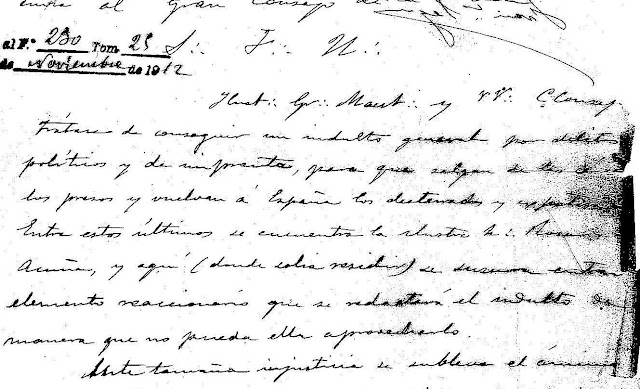 al Gran Consejo de la
al F.º 230 Tom 25 S∴ F∴ U∴
de Noviembre de 1912
Ilust∴ Gr∴ Maest∴ y VV∴ Consej
Trátase de conseguir un indulto general por delitos
políticos y de imprenta, para que salgan de
los presos y vuelvan á España los desterrados y
Entre estos últimos se encuentra la ilustre h∴ Rosario
Acuña, y aquí (donde solía residir) se susurra entre
elemento reaccionario que se redactará el indulto de
manera que no pueda ella aprovecharlo.
Ante tamaña injusticia se subleva el ánimo